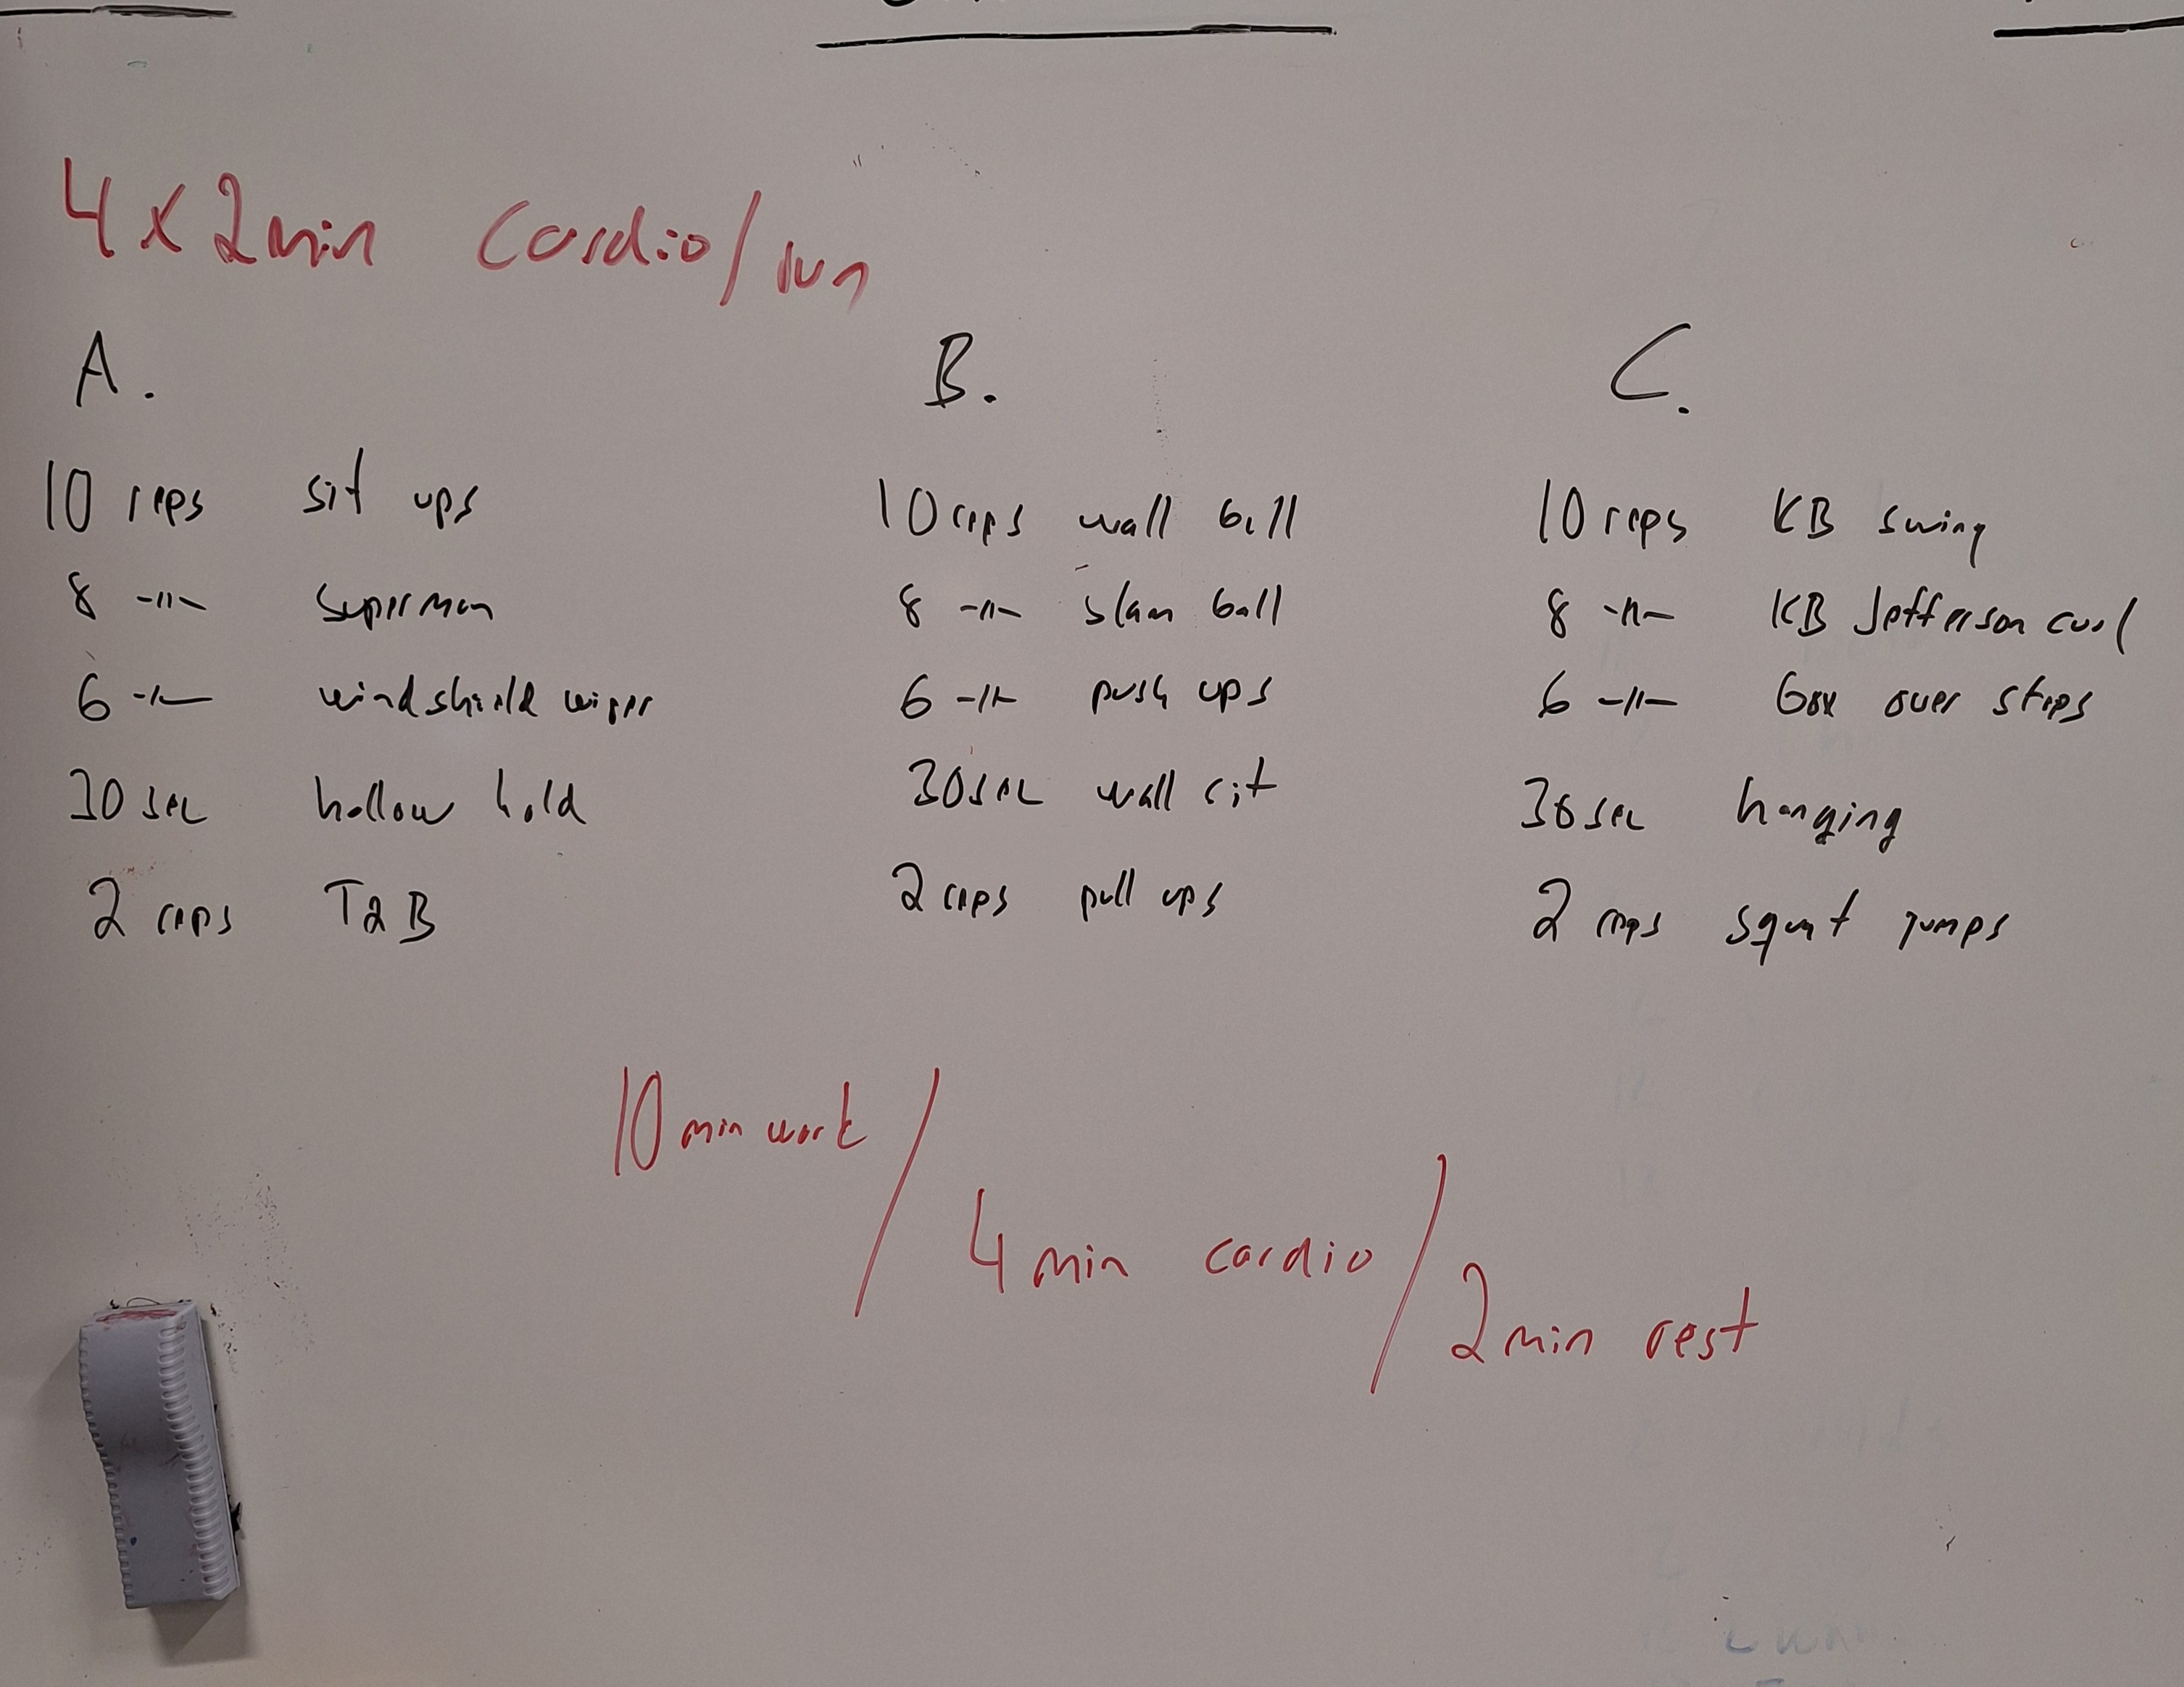 4 x 2min cardio/run
A.
10 reps sit ups
8 -11- superman
6 -11- windshield wiper
30 sec hollow hold
2 reps T2B
B.
10 reps wall ball
8 -11- slam ball
6 -11- push ups
30sec wall sit
2 reps pull ups
C.
10 reps KB swing
8 -11- KB Jefferson curl
6 -11- box over steps
30 sec hanging
2 reps squat jumps
10 min work /
4 min cardio /
2 min rest